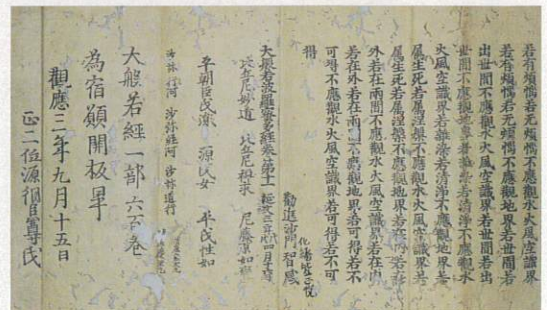 若有煩惱若無煩惱不應觀水火風空識界
若有煩惱若無煩惱不應觀地界若世間若
出世間不應觀水火風空識界若世間若出
世間不應觀地界若雜染若清淨不應觀水
火風空識界若雜染若清淨不應觀地界若
屬生死若屬涅槃不應觀水火風空識界若
屬生死若屬涅槃不應觀地界若在內若在
外若在兩間不應觀水火風空識界若在內
若在外若在兩間不應觀地界若可得若不
可得不應觀水火風空識界若可得若不可
得
勸進沙門智感
大般若波羅蜜多經卷第十一
平朝臣氏 源氏女 平氏性如
大般若經一部六百卷
為宿願開板畢
觀應三年九月十五日
正二位源朝臣尊氏